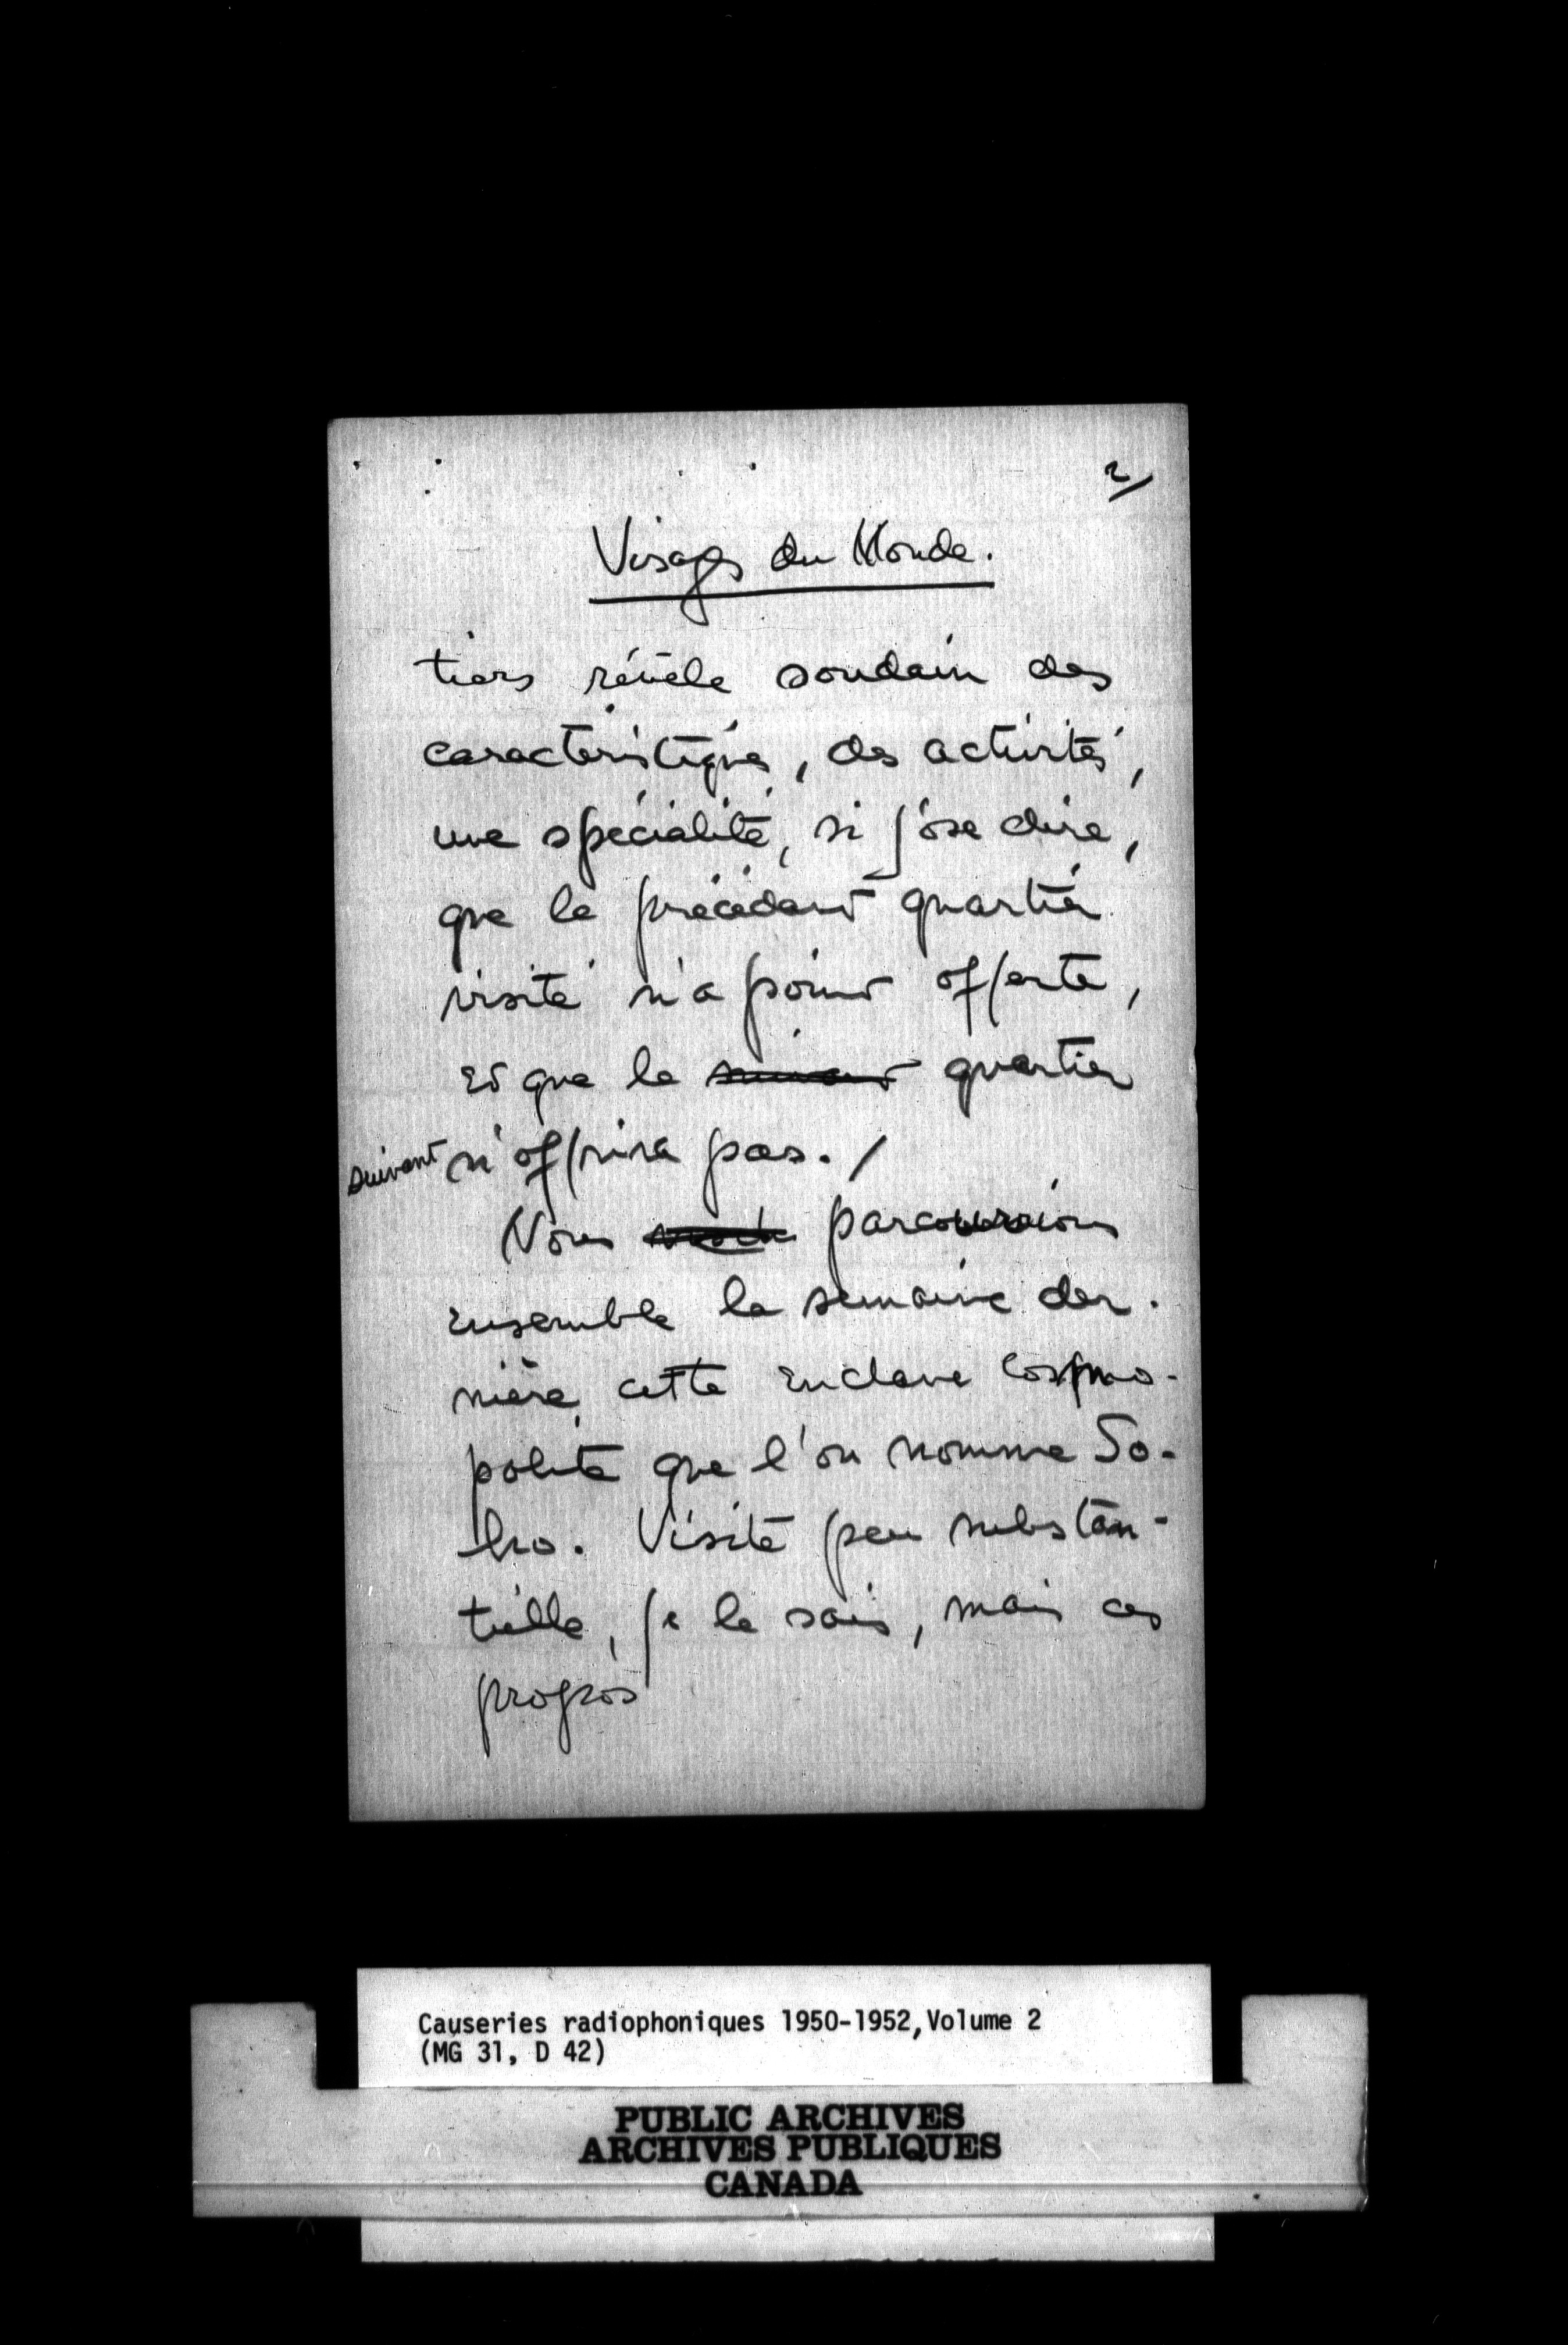 2/
Visages du Monde.
tiers révèle soudain des
caractéristiques, des activités,
une spécialité, si j'ose dire,
que le précédent quartier
visité n'a point offerte,
et que le suivant quartier
suivant n'offrira pas. /
Nous parcourions
ensemble la semaine der-
nière, cette enclave cosmo-
polite que l'on nomme So-
ho. Visite peu substan-
tielle, je le sais, mais ces
propos
Causeries radiophoniques 1950-1952, Volume 2
(MG 31, D 42)
PUBLIC ARCHIVES
ARCHIVES PUBLIQUES
CANADA